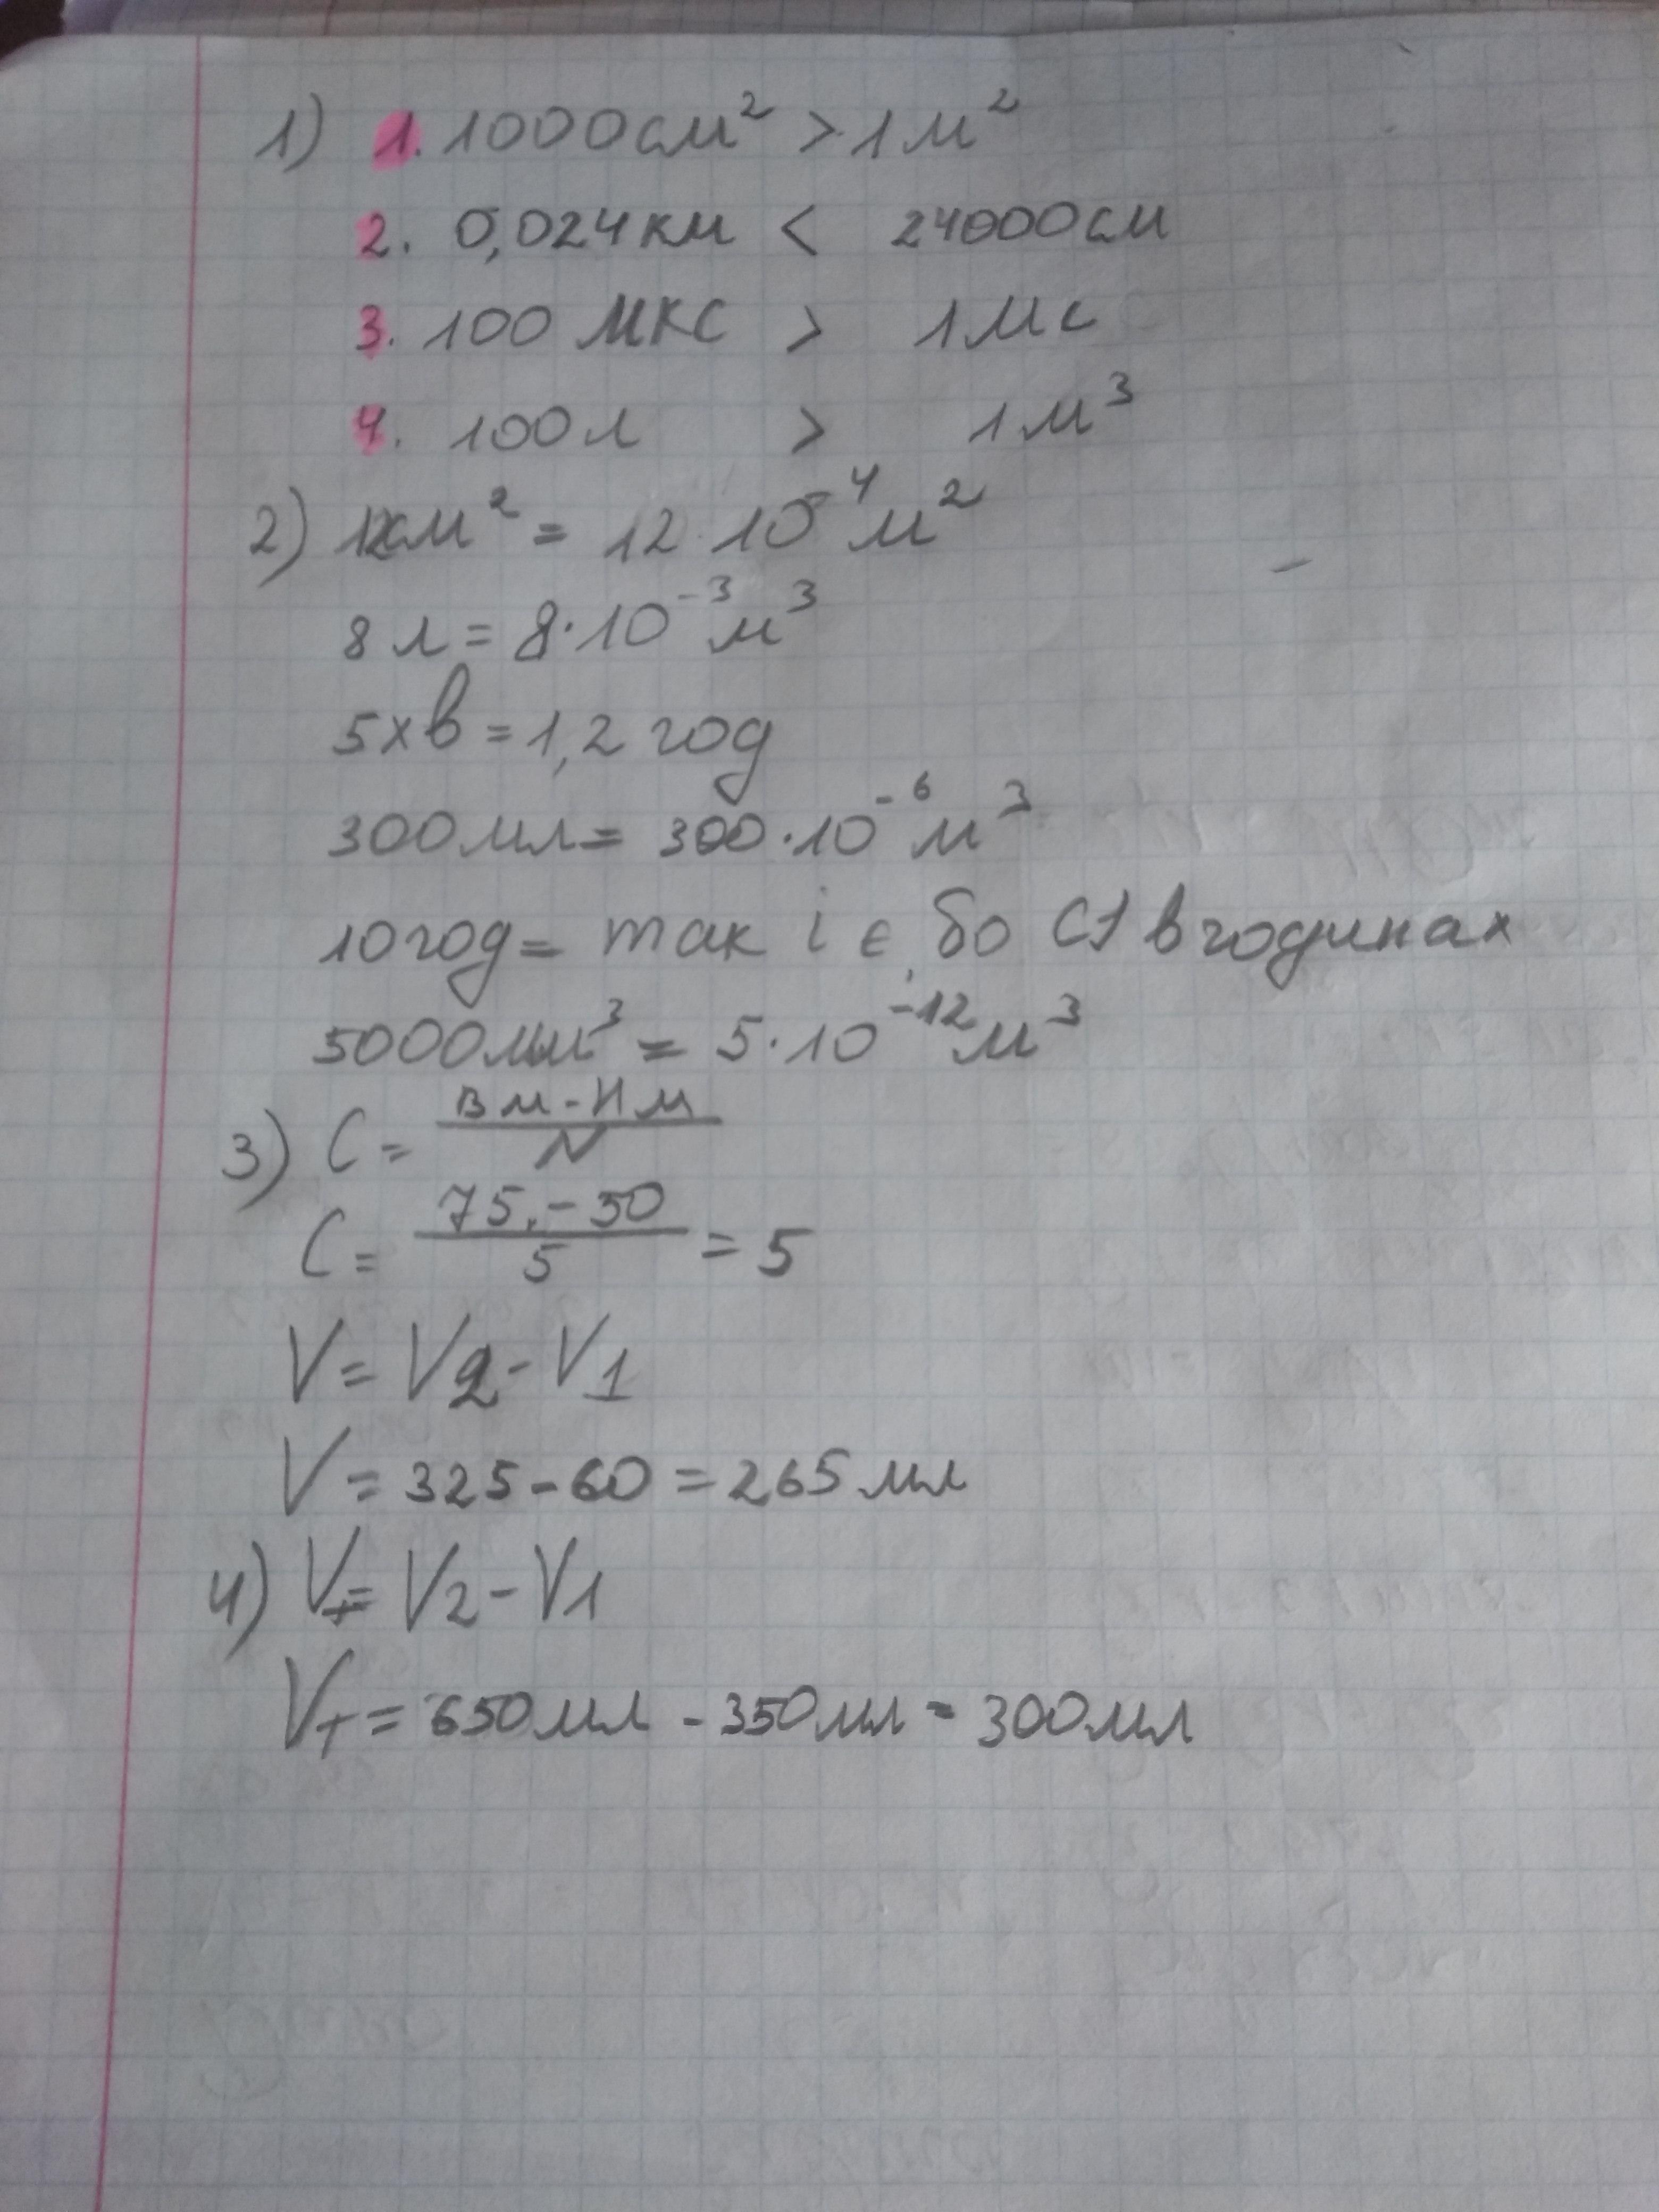 1) 1. 1000см² > 1м²
2. 0,024км < 24000см
3. 100 мкс > 1мс
4. 100л > 1м³
2) 12см² = 12·10⁻⁴м²
8л = 8·10⁻³м³
5хв = 1,2 год
300мл = 300·10⁻⁶м³
10год = так і є, бо СІ в годинах
5000мм³ = 5·10⁻¹²м³
3) C = (вм-Нм)/N
C = (75,-50)/5 = 5
V = V2 - V1
V = 325 - 60 = 265мл
4) Vт = V2 - V1
Vт = 650мл - 350мл = 300мл